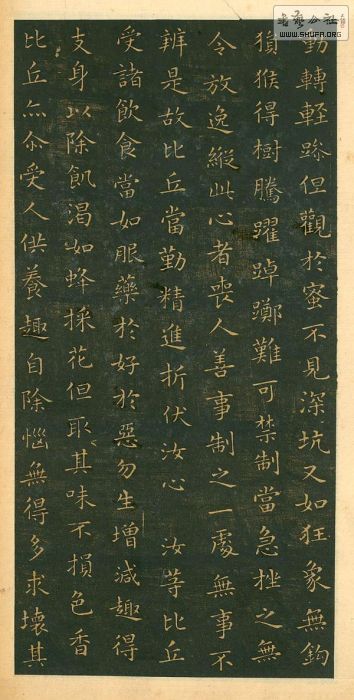 動轉輕躁但觀於蜜不見深坑又如狂象無鈎
猨猴得樹騰躍踔躑難可禁制當急挫之無
令放逸縱此心者喪人善事制之一處無事不
辨是故比丘當勤精進折伏汝心 汝等比丘
受諸飲食當如服藥於好於惡勿生增減趣得
支身以除飢渴如蜂採花但取其味不損色香
比丘亦尒受人供養趣自除惱無得多求壞其
WWW.SHUFA.ORG